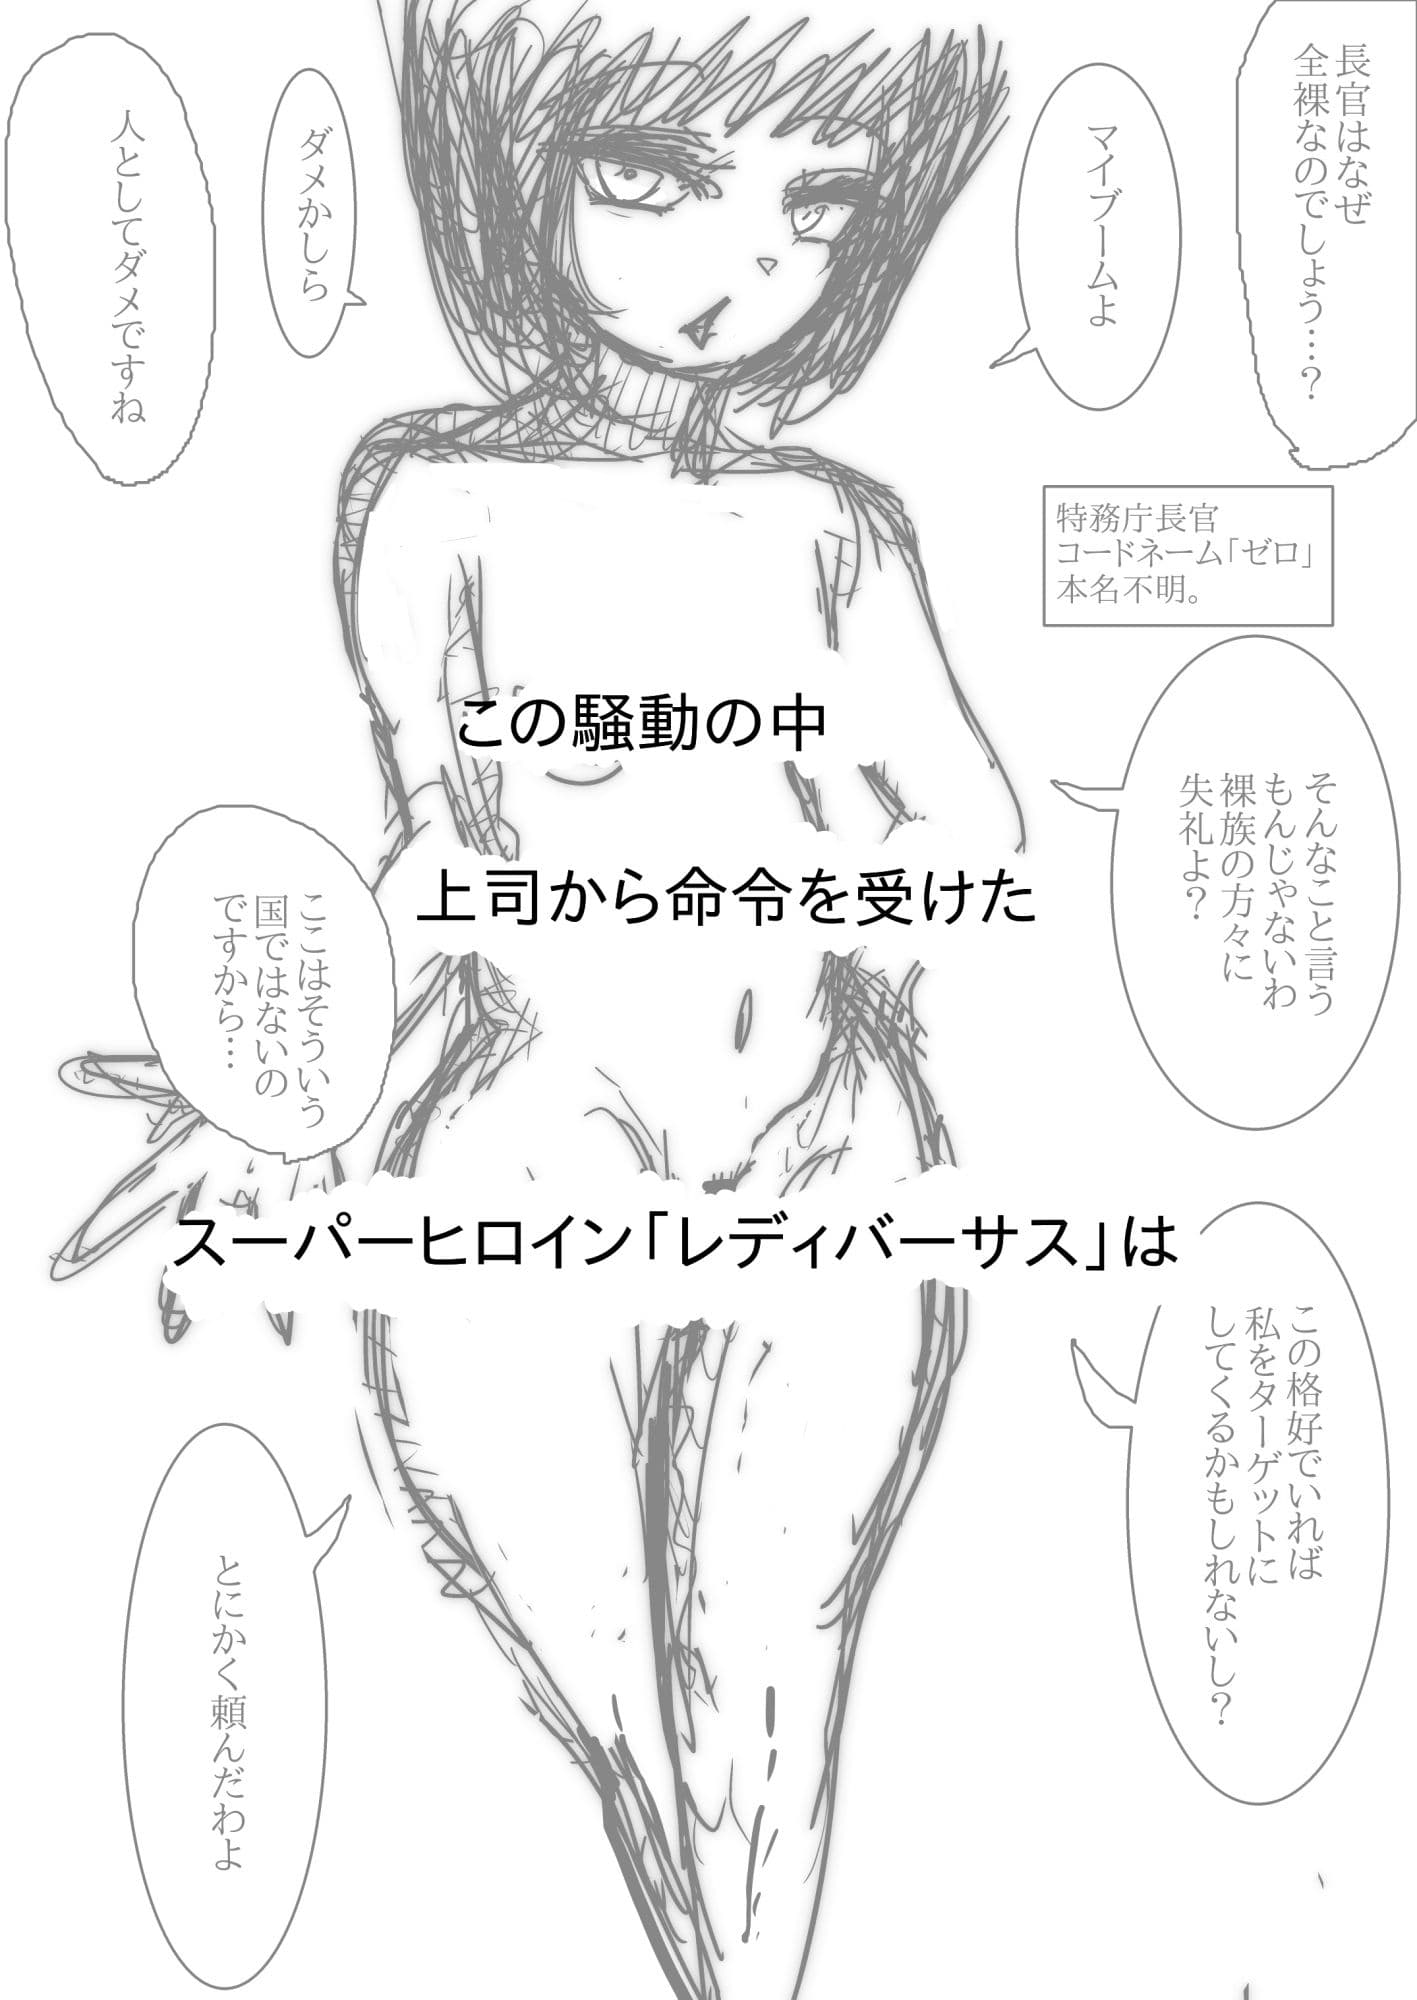 長官はなぜ
全裸なのでしょう…？
マイブームよ
ダメかしら
人としてダメですね
特務庁長官
コードネーム「ゼロ」
本名不明。
この騒動の中
そんなこと言う
もんじゃないわ
裸族の方々に
失礼よ？
上司から命令を受けた
ここはそういう
国ではないの
ですから…
スーパーヒロイン「レディバーサス」は
この格好でいれば
私をターゲットに
してくるかもしれないし？
とにかく頼んだわよ